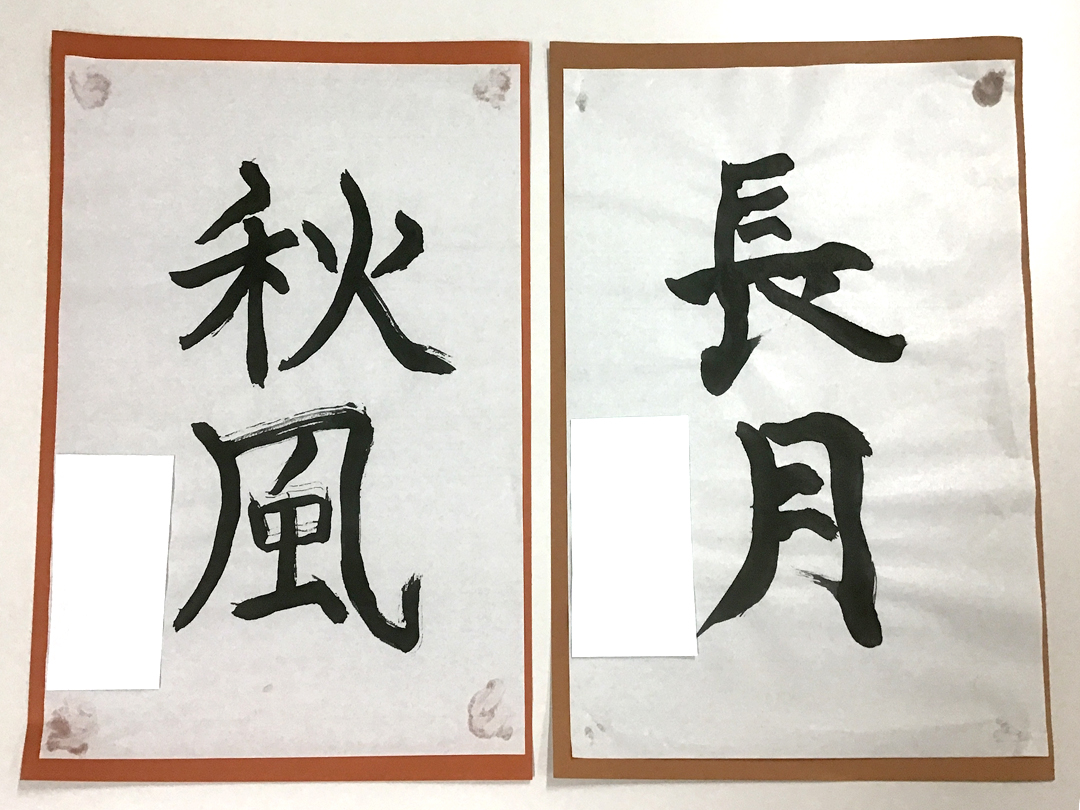 秋風
長月